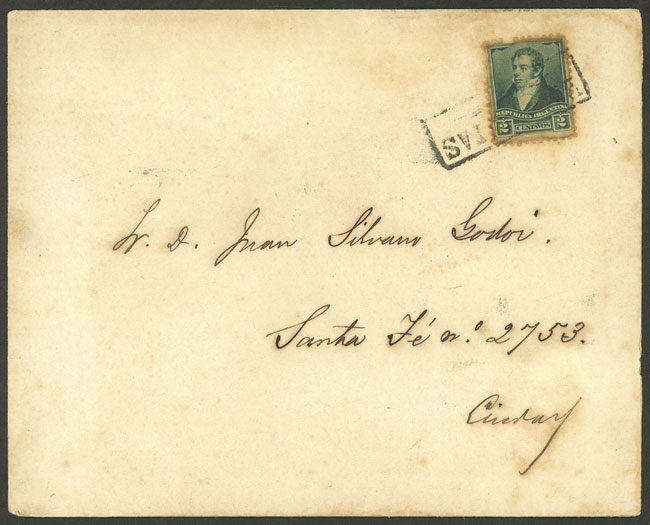 REPUBLICA ARGENTINA
2 CENTAVOS 2
TAS
Sr. D. Juan Silvano Godoi.
Santa Fé nº 2753.
Ciudad